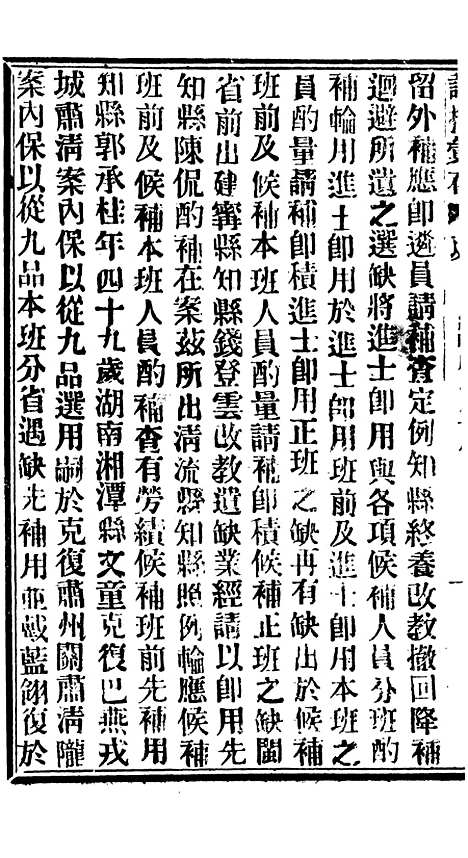 留外補應即遴員請補查定例知縣終養改教撤回降補
迴避所遺之選缺將進士即用與各項候補人員分班酌
補輪用進士即用於進士即用班前及進士即用本班之
員酌量請補即積進士即用正班之缺再有缺出於候補
班前及候補本班人員酌量請補即積候補正班之缺閩
省前出建寧縣知縣錢登雲改教遺缺業經請以即用先
知縣陳侃酌補在案茲所出清流縣知縣照例輪應候補
班前及候補本班人員酌補查有勞績候補班前先補用
知縣郭承桂年四十九歲湖南湘潭縣文童克復巴燕戎
城肅清案內保以從九品選用嗣於克復肅州關肅清隴
案內保以從九品本班分省遇缺先補用並戴藍翎復於